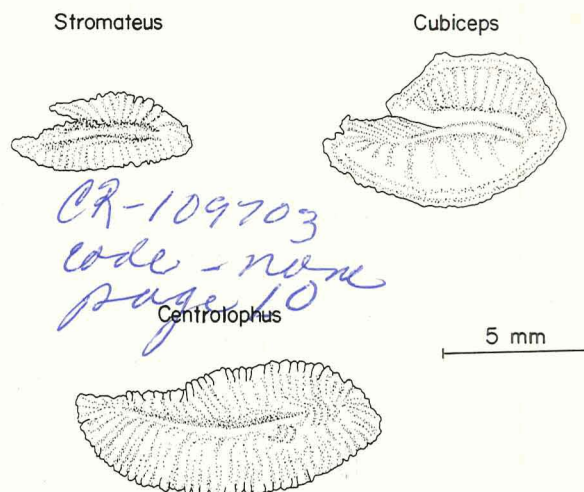 Stromateus
Cubiceps
CR-109703
code - none
page 10
Centrolophus
5 mm